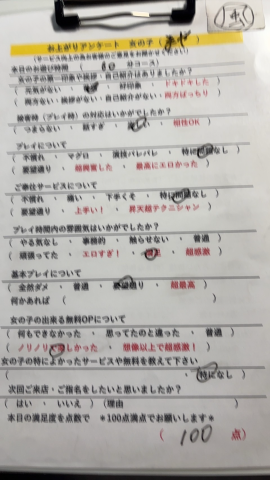 お上がりアンケート 女の子(
(サービス向上の為お客様のご意見をお聞かせください)
本日のお遊び時間 80 分コース)
女の子の第一印象や挨拶・自己紹介はありましたか?
( 元気がない ・ ・ 好印象 ・ ドキドキした
( 両方ない・挨拶がない・自己紹介がない・両方ばっちり )
接客時(プレイ時)の対応はいかがでしたか?
( つまらない ・ 話すぎ ・ ・ 相性OK )
プレイについて
( 不慣れ ・ マグロ ・ 演技バレバレ ・ 特に問題なし
( 要望通り ・ 超興奮した ・ 最高にエロかった )
ご奉仕サービスについて
( 不慣れ ・ 痛い ・ 下手くそ ・ 特に問題なし
( 要望通り ・ 上手い! ・ 昇天超テクニシャン )
プレイ時間内の雰囲気はいかがでしたか?
( やる気なし ・ 事務的 ・ 触らせない ・ 普通
( 頑張ってた ・ エロすぎ! ・ 満足 ・ 超感激 )
基本プレイについて
( 全然ダメ ・ 普通 ・ 要望通り ・ 超最高 )
何かあれば ( )
女の子の出来る無料OPについて
( 何もできなかった ・ 思ってたのと違った ・ 普通 )
( ノリノリで楽しかった ・ 想像以上で超感激! )
女の子の特によかったサービスや無料を教えて下さい
( ・ 特になし )
次回ご来店・ご指名をしたいと思いましたか?
( はい ・ いいえ ) (理由 )
本日の満足度を点数で *100点満点でお願いします*
( 100 点)